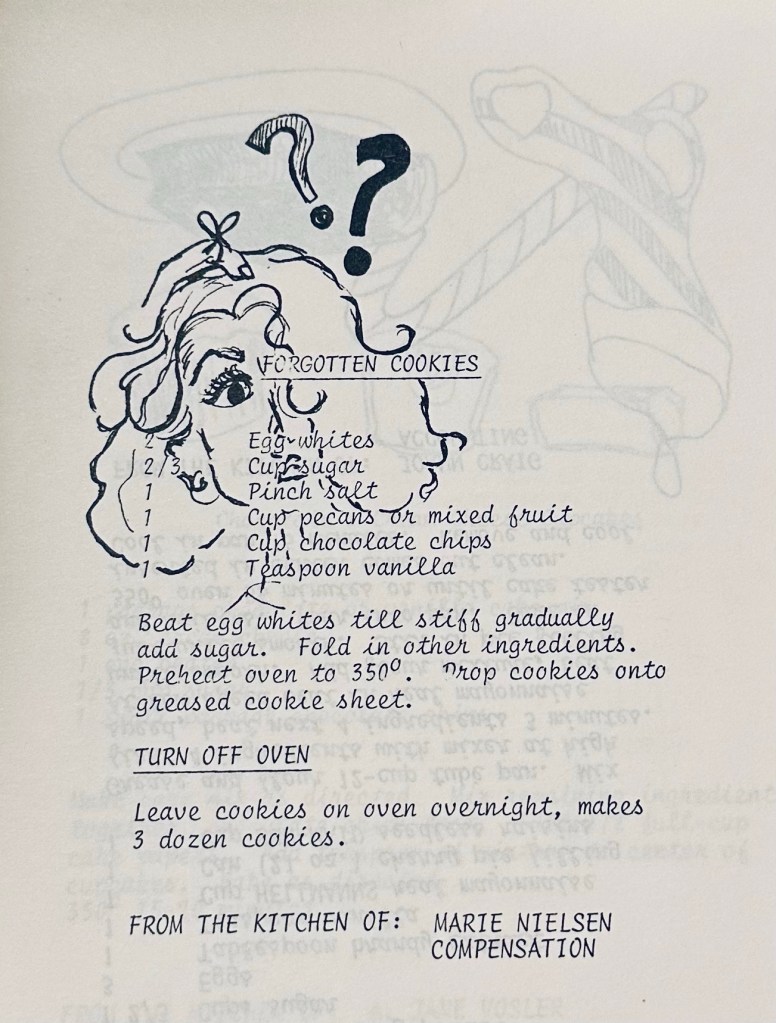 ? ?
FORGOTTEN COOKIES
2 Egg whites
2/3 Cup sugar
1 Pinch salt
1 Cup pecans or mixed fruit
1 Cup chocolate chips
1 Teaspoon vanilla
Beat egg whites till stiff gradually
add sugar. Fold in other ingredients.
Preheat oven to 350°. Drop cookies onto
greased cookie sheet.
TURN OFF OVEN
Leave cookies on oven overnight, makes
3 dozen cookies.
FROM THE KITCHEN OF: MARIE NIELSEN
COMPENSATION